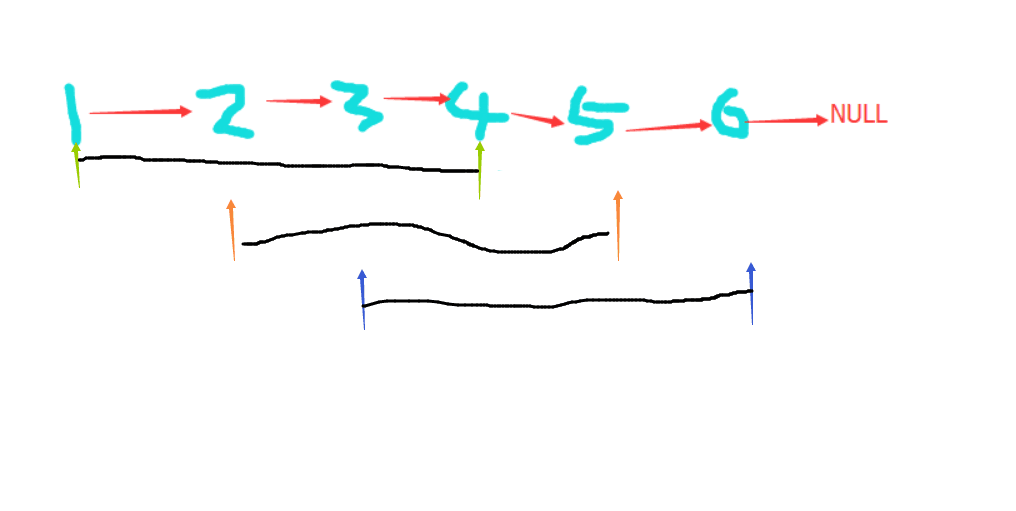 1 2 3 4 5 6 NULL